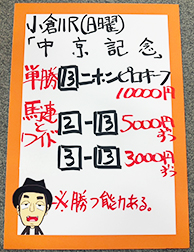 小倉11R(日曜)
「中京記念」
単勝 13 ニホンピロキーフ
10000円
馬連とワイド
2-13 5000円ずつ
3-13 3000円ずつ
※勝つ能力ある。